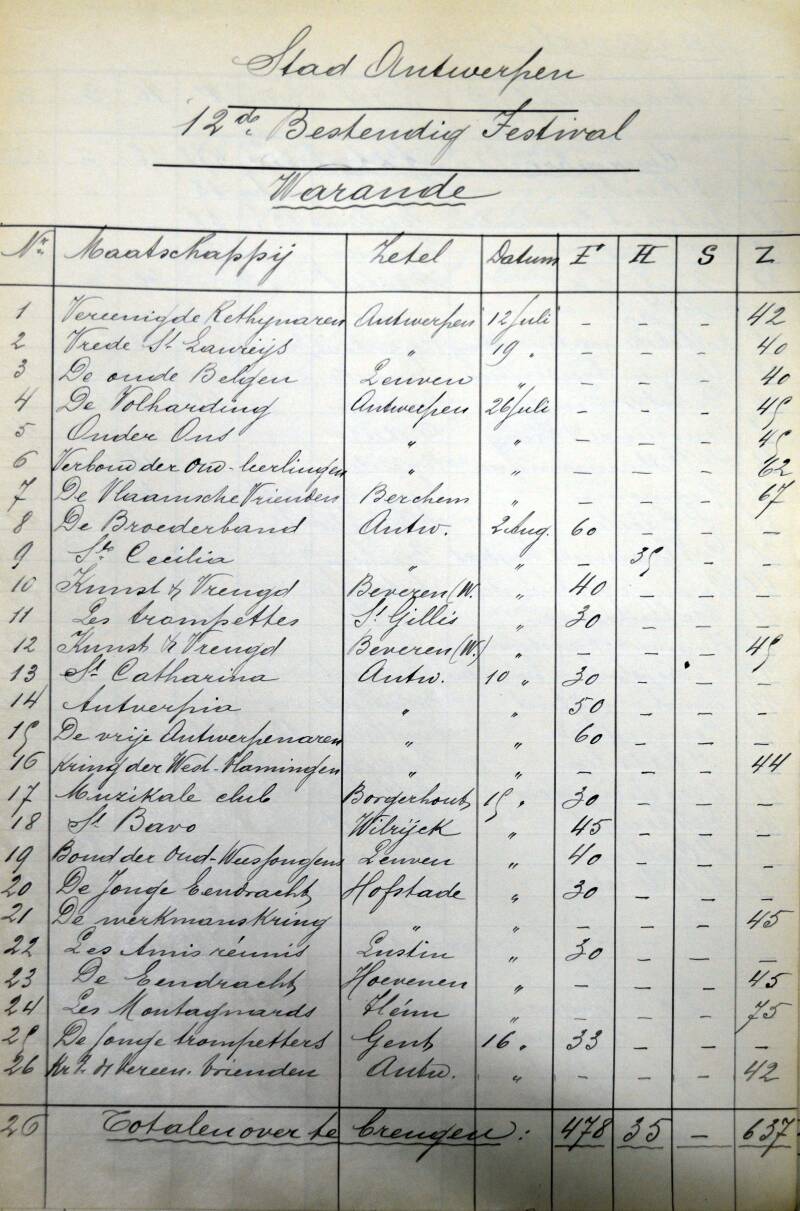 Stad Antwerpen
12de Bestendig Festival
Warande
Nr. Maatschappij Zetel Datum F H S Z
1 Vereenigde Kethynaren Antwerpen 12 Juli – – – 42
2 Vrede St Laureijs " 19 " – – – 40
3 De oude Belgen Leuven " – – – 40
4 De Volharding Antwerpen 26 Juli – – – 45
5 Onder Ons " " – – – 45
6 Verbond der oud-leerlingen " " – – – 62
7 De Vlaamsche Vrienden Berchem " – – – 67
8 De Broederband Antw. 2 Aug. 60 – – –
9 Ste Cecilia " " – 35 – –
10 Kunst & Vreugd Beveren (W. " 40 – – –
11 Les trompettes St Gillis " 30 – – –
12 Kunst & Vreugd Beveren (W.) " – – – 45
13 St Catharina Antw. 10 " 30 – – –
14 Antverpia " " 50 – – –
15 De vrije Antwerpenaren " " 60 – – –
16 Kring der West-Vlamingen " " – – – 44
17 Muzikale club Borgerhout 15 " 30 – – –
18 St Bavo Wilrijck " 45 – – –
19 Bond der Oud-Weesjongens Leuven " 40 – – –
20 De Jonge Eendracht Hofstade " 30 – – –
21 De werkmanskring " " – – – 45
22 Les Amis réunis Lustin " 30 – – –
23 De Eendracht Hoevenen " – – – 45
24 Les Montagnards " – – – 75
25 De Jonge trompetters Gent 16 " 33 – – –
26 Vereen. Vrienden Antw. " – – – 42
26 Totalen over te brengen: 478 35 – 637